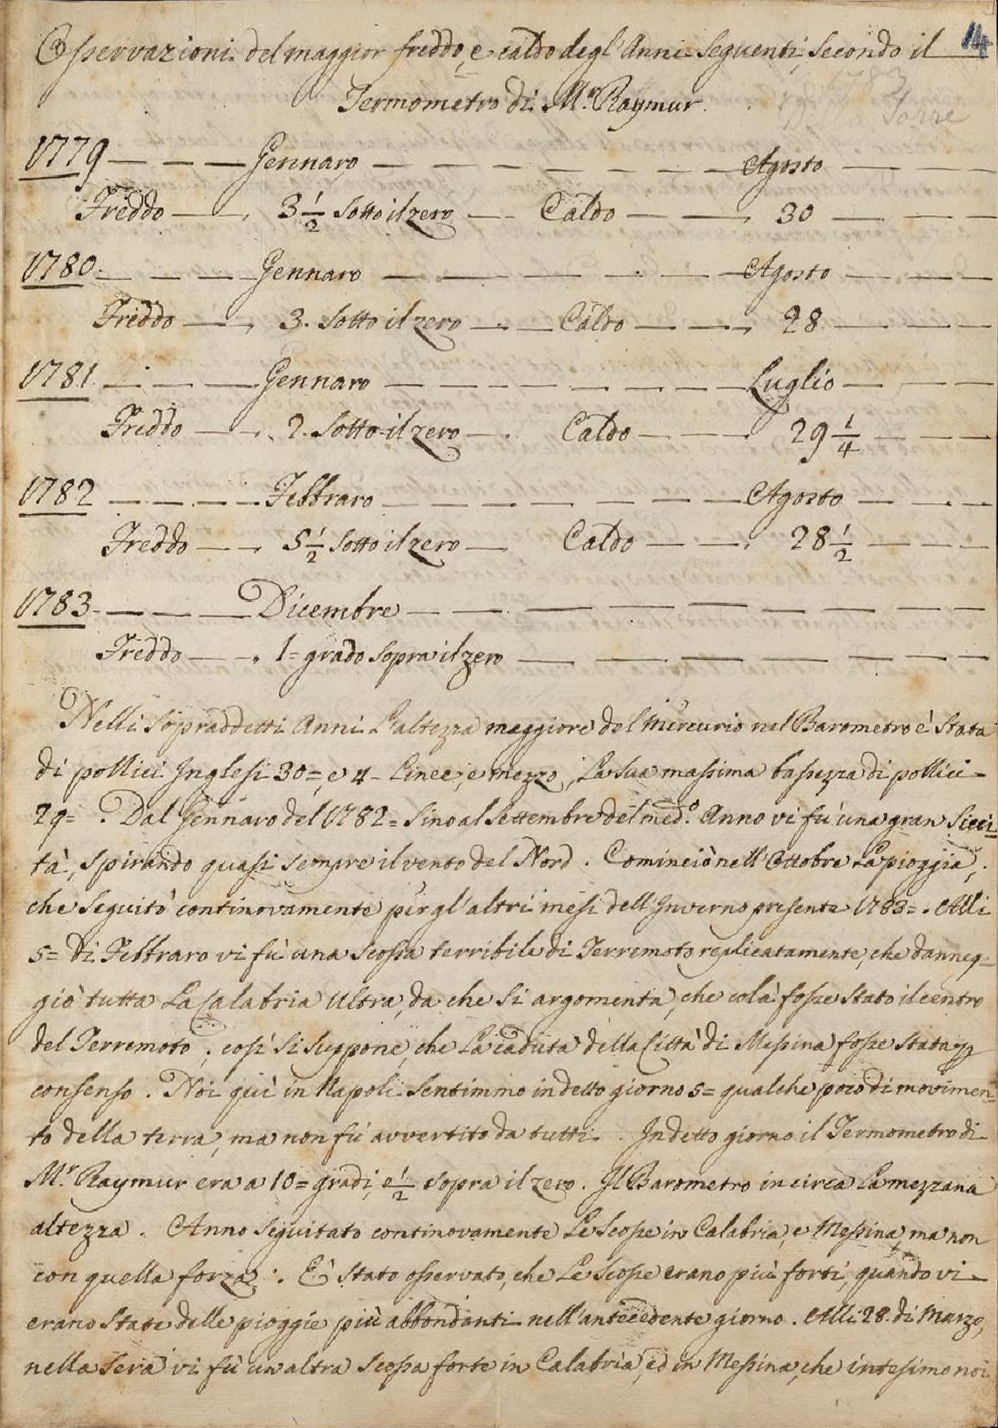 14
Osservazioni del maggior freddo, e caldo degl'Anni Seguenti, Secondo il
Termometro di M.r Raymur.
Torre
1779 — — — Gennaro — — — — — — — Agosto — — —
Freddo — . 3 1/2 Sotto il zero — Caldo — — . 30 — — —
1780. — — — Gennaro — — — — — — Agosto — — —
Freddo — . 3. Sotto il zero — . Caldo — — . 28 — — —
1781. — — — Gennaro — — — — — — — Luglio — — —
Freddo — . 2. Sotto il zero — . Caldo — — . 29 1/4 — — —
1782 — — — — Febbraro — — — — — — Agosto — — —
Freddo — . 5 1/2 Sotto il zero — Caldo — — . 28 1/2 — — —
1783. — — — Dicembre — — — — — — — — —
Freddo — . 1= grado Sopra il zero — — — — — — —
Nelli Sopraddetti Anni L'altezza maggiore del Mercurio nel Barometro è Stata
di pollici Inglesi 30=, e 4- Linee, e mezzo, La Sua massima bassezza di pollici-
29= . Dal Gennaro del 1782= Sino al Settembre del med.o Anno vi fù una gran Sicci-
tà, Spirando quasi Sempre il vento del Nord. Cominciò nell'Ottobre La pioggia,
che Seguitò continovamente per gl'altri mesi dell'Inverno presente 1783= . Alli
5= di Febbraro vi fù una Scossa terribile di Terremoto replicatamente, che danneg-
giò tutta La Calabria Ultra, da che Si argomenta, che colà fosse Stato il centro
del Terremoto, così Si Suppone che La caduta della Città di Messina fosse Stata p
consenso. Noi quì in Napoli Sentimmo in detto giorno 5= qualche poco di movimen=
to della terra, ma non fù avvertito da tutti. In detto giorno il Termometro di
M.r Raymur era a 10= gradi, e 1/2 Sopra il zero. Il Barometro in circa La mezzana
altezza. Anno Seguitato continovamente Le Scosse in Calabria, e Messina, ma non
con quella forza. È Stato osservato, che Le Scosse erano più forti, quando vi-
erano State delle pioggie più abbondanti nell'antecedente giorno. Alli 28. di Marzo,
nella Sera vi fù un'altra Scossa forte in Calabria, ed in Messina, che intesimo noi